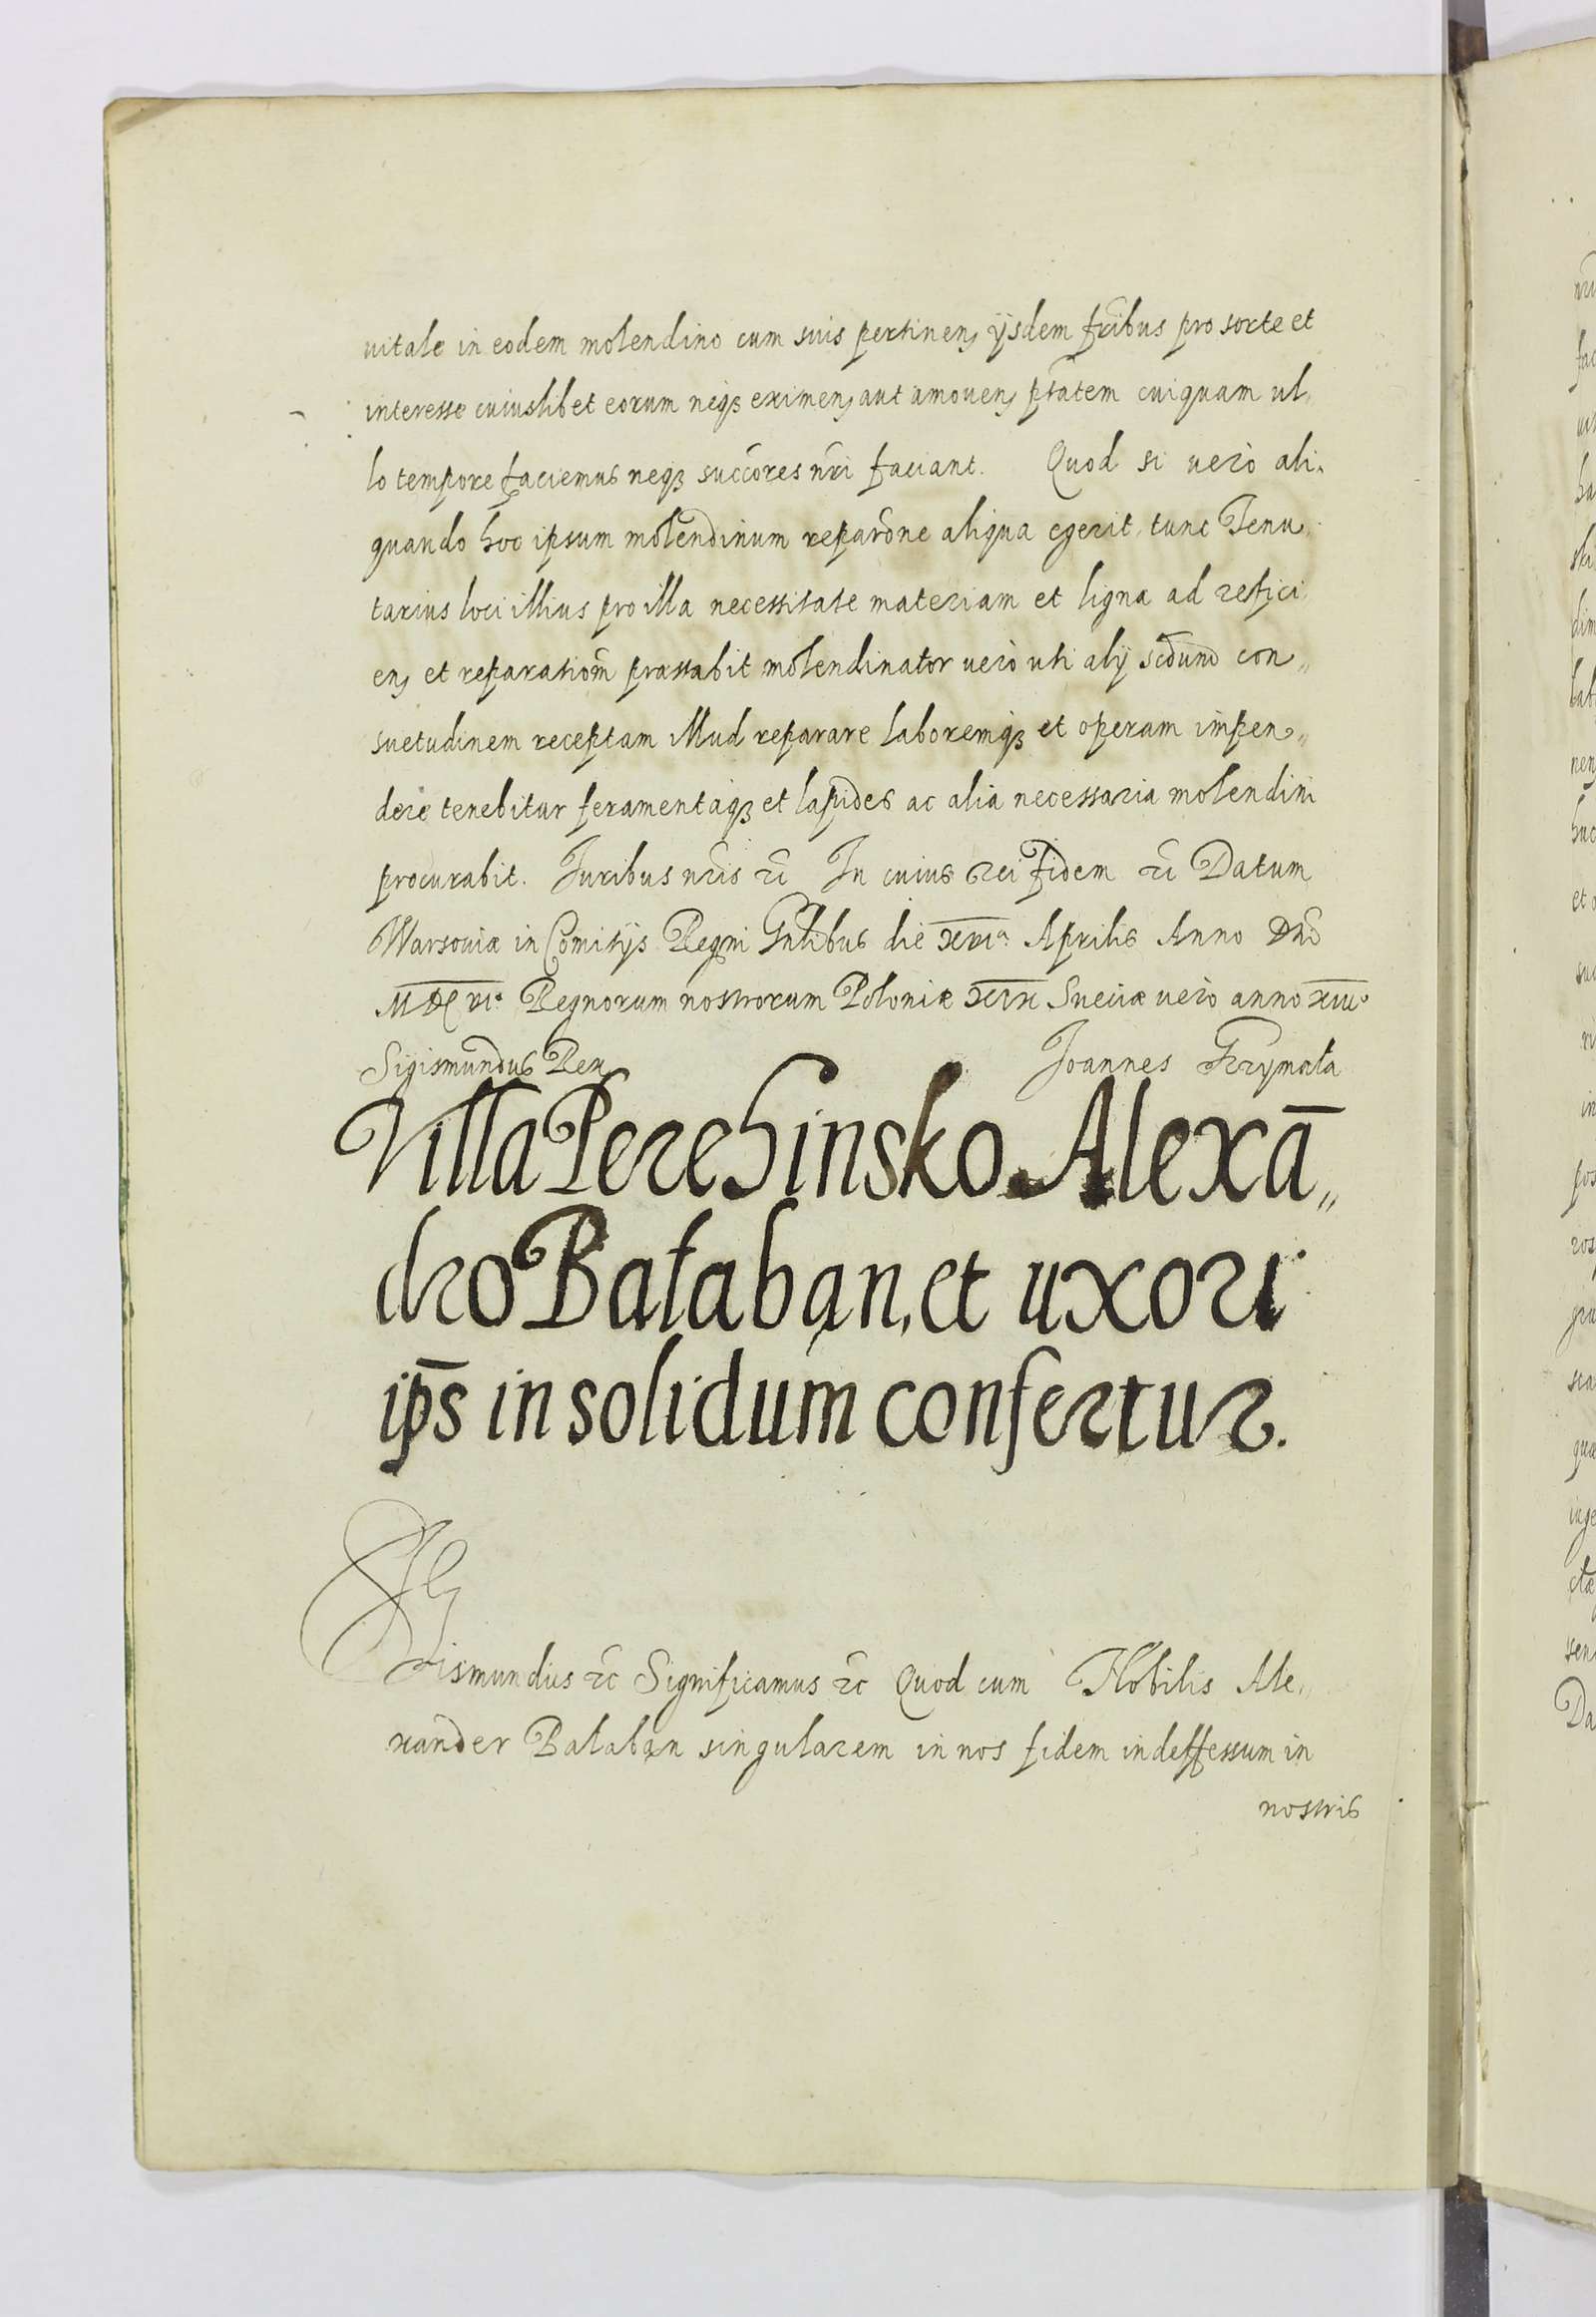 vitale in eodem molendino cum suis pertinen, ijsdem fribus pro sorte et
interesse cuiuslibet eorum neqꝫ eximen, aut amouen, ptatem cuiquam ul,
lo tempore faciemus neqꝫ succores nri faciant. Quod si uero ali,
quando hoc ipsum molendinum reparone aliqua egerit, tunc Tenu,
tarius loci illius pro illa necessitate materiam et ligna ad refici,
en, et reparationm præstabit molendinator uerò uti alij scdum con,,
suetudinem receptam illud reparare laboremqꝫ et operam impen,,
dere tenebitur feramentaqꝫ et lapides ac alia necessaria molendini
procurabit. Juribus nris &c In cuius rei fidem &c Datum
Warsouiæ in Comitijs Regni Gnlibus die XVIa Aprilis Anno Dni
MDCVIo Regnorum nostrorum Poloniæ XIX Sueciæ uerò anno XIIIo
Sigismundus Rex Joannes Grzymała
Villa Perehinsko Alexā,,
dro Bałaban, et uxori
ips in solidum confertur.
Sigismundus &c Significamus &c Quod cum Nobilis Ale,,
xander Bałaban singularem in nos fidem indeffessum in
nostris